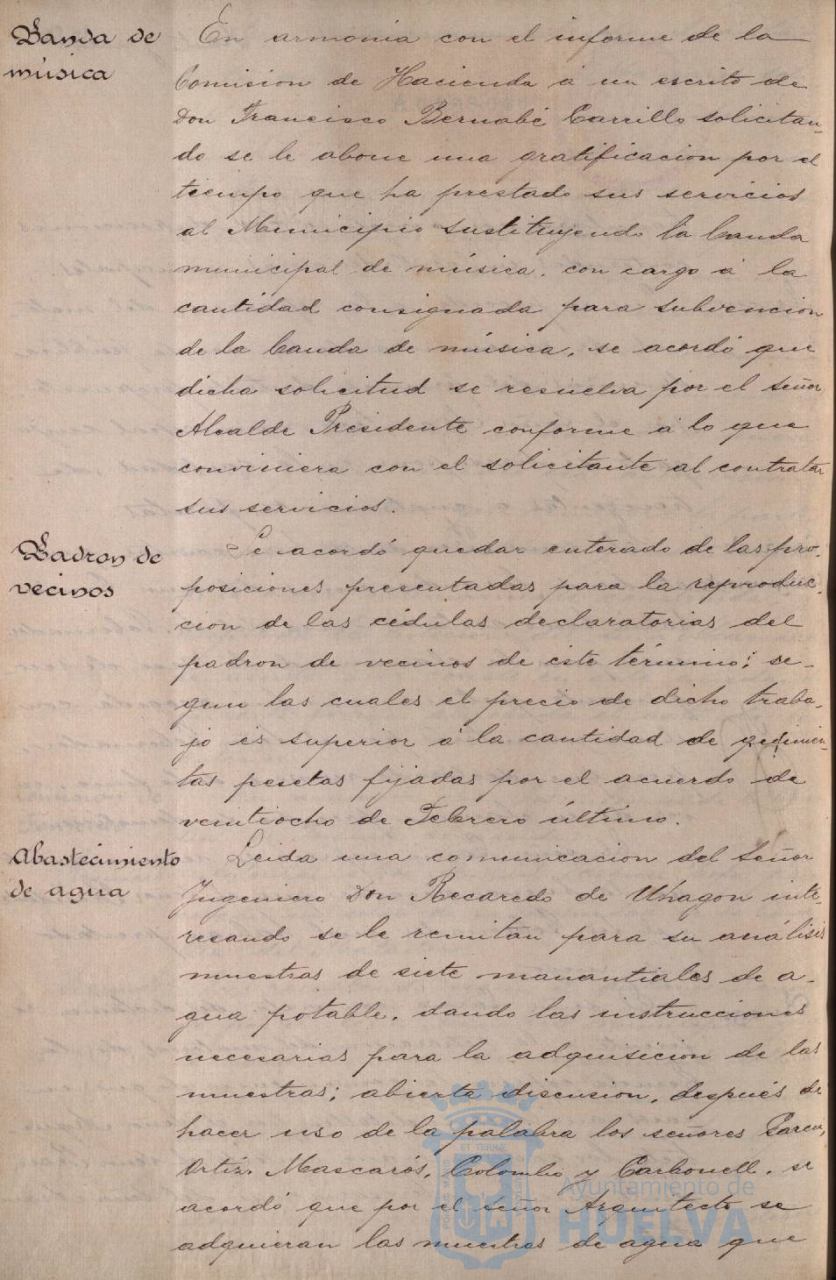 Banda de
música
En armonia con el informe de la
Comision de Hacienda á un escrito de
Don Francisco Bernabé Carrillo solicitan-
do se le abone una gratificacion por el
tiempo que ha prestado sus servicios
al Municipio sustituyendo la banda
municipal de música, con cargo á la
cantidad consignada para subvencion
de la banda de música, se acordó que
dicha solicitud se resuelva por el señor
Alcalde Presidente conforme á lo que
conviniera con el solicitante al contratar
sus servicios.
Padron de
vecinos
Se acordó quedar enterado de las pro-
posiciones presentadas para la reproduc-
cion de las cédulas declaratorias del
padron de vecinos de este término; se-
gun las cuales el precio de dicho traba-
jo es superior á la cantidad de quinien-
tas pesetas fijadas por el acuerdo de
veintiocho de Febrero último.
Abastecimiento
de agua
Leida una comunicacion del señor
Ingeniero Don Recaredo de Uhagon inte-
resando se le remitan para su análisis
muestras de siete manantiales de a-
gua potable, dando las instrucciones
necesarias para la adquisicion de las
muestras; abierta discusion, después de
hacer uso de la palabra los señores
Ortiz, Mascarós, Colombo y Carbonell, se
acordó que por el señor Arquitecto se
adquieran las muestras de agua que
Ayuntamiento de
HUELVA